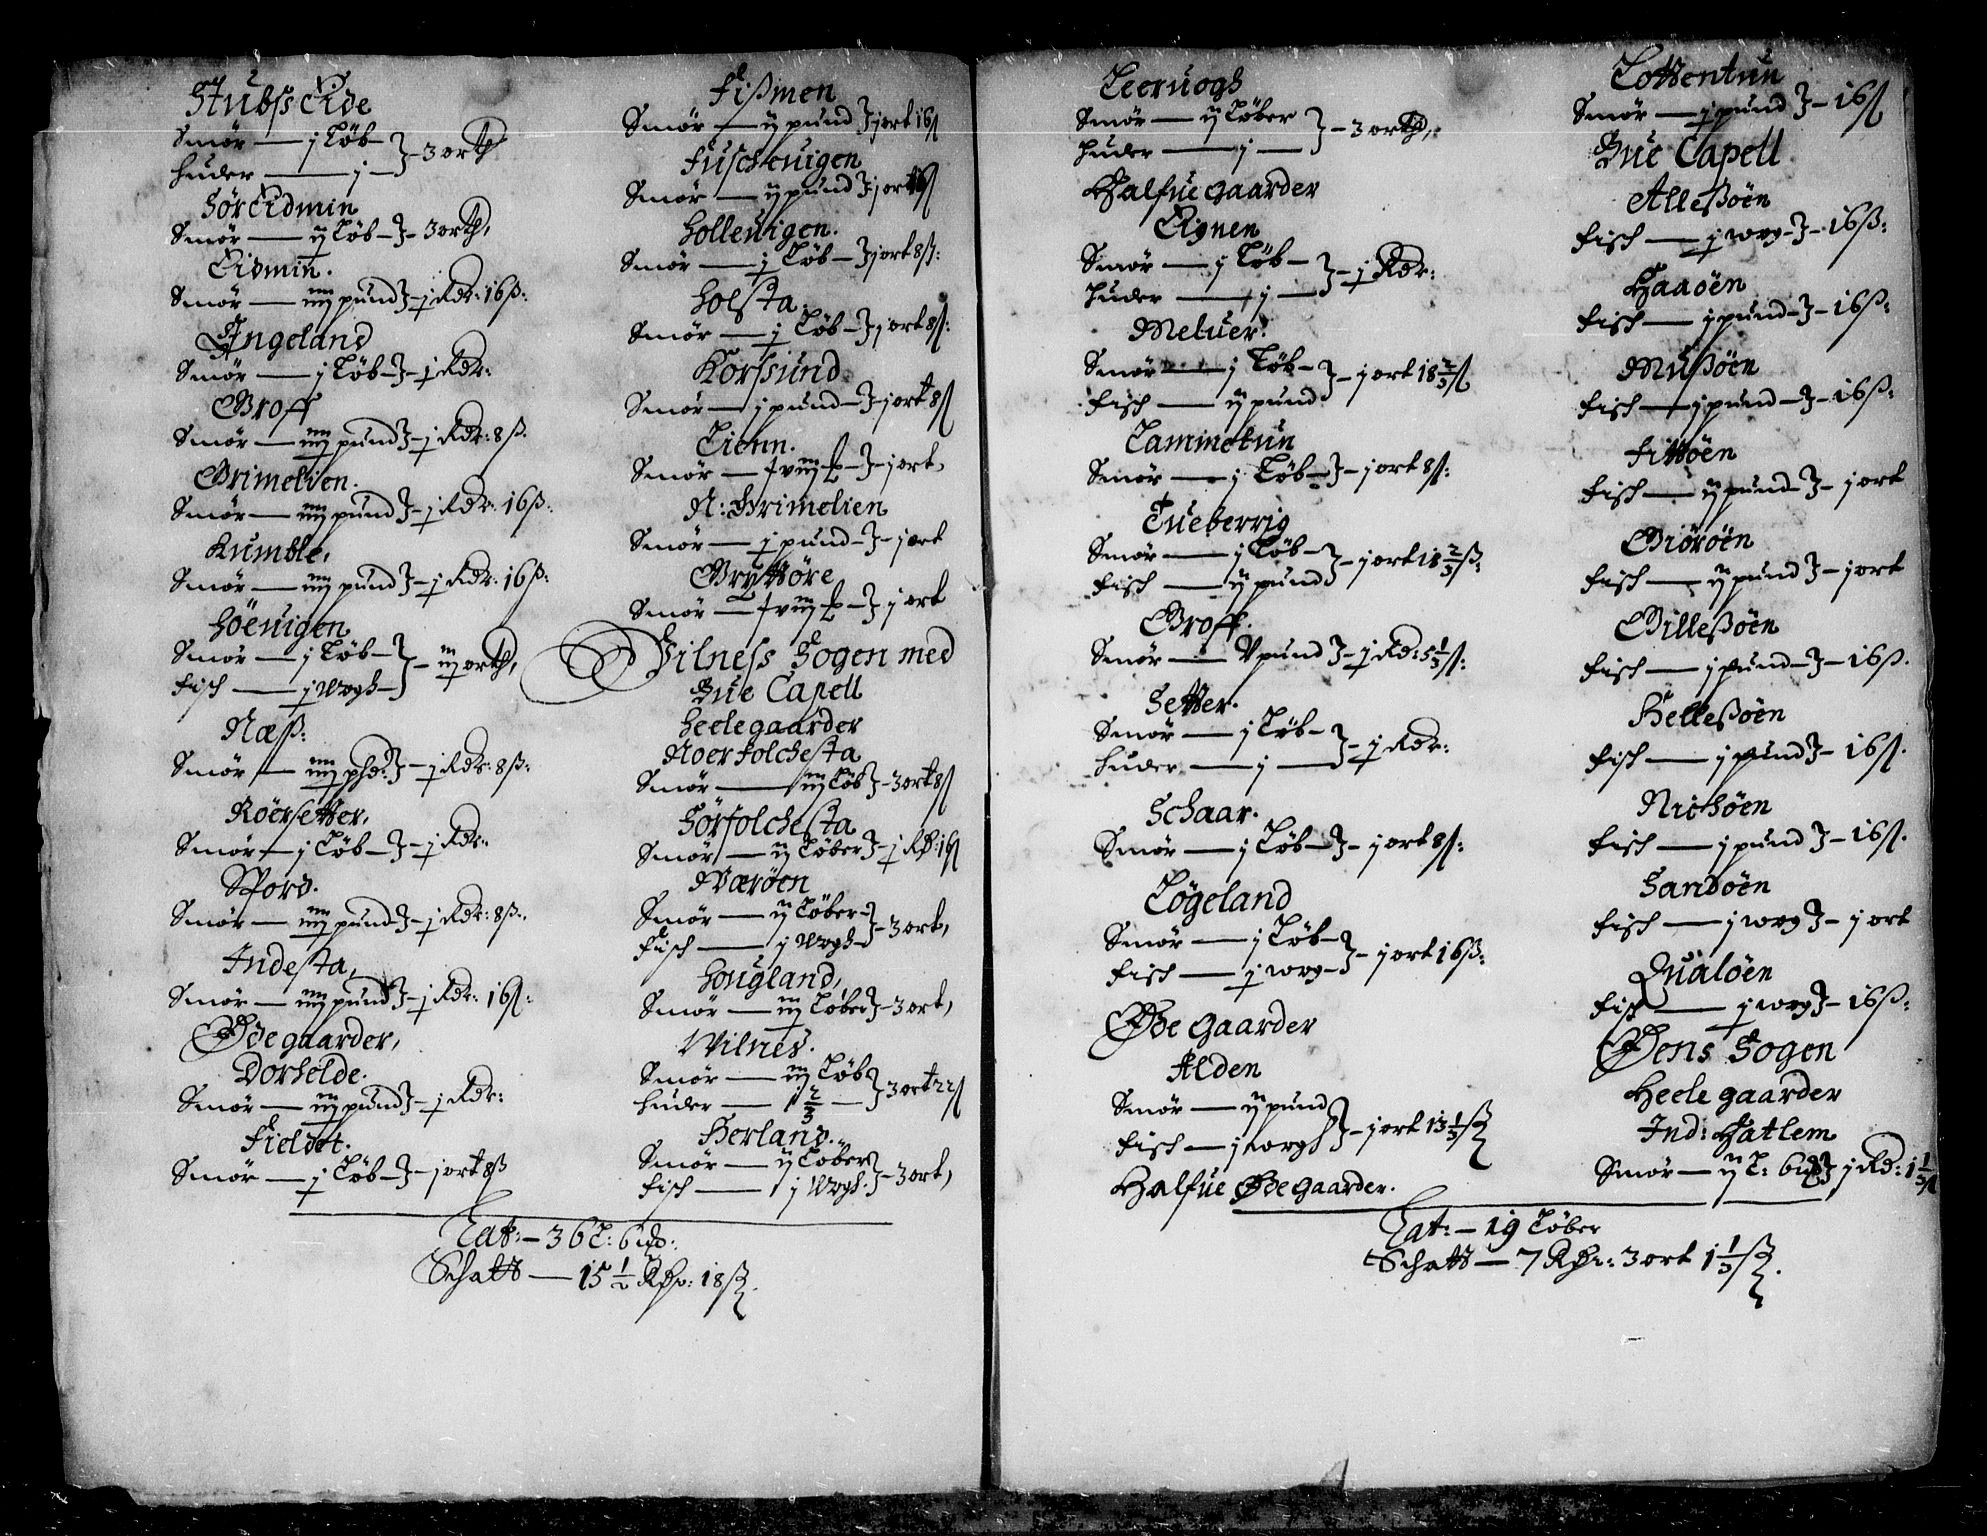 Stubss Eide
Smör — j Löb
huder — j — } - 3 orth
Sör Eidmin
Smör — ij Löb - } - 3 orth,
Eidmin.
Smör — iiij pund } - j Rdr: 16 ß:
Angeland
Smör — j Löb - } - j Rdr:
Groff
Smör — iiij pund } - j Rdr: 8 ß.
Grimelien.
Smör — iiij pund } - j Rdr: 16 ß:
Kumble,
Smör — iiij pund } - j Rdr: 16 ß:
höeuigen
Smör — j Löb -
fisch — j Wogh - } - iij orth,
Næß:
Smör — iiij phd: } - j Rdr: 8 ß:
Röersetter,
Smör — j Löb - } - j Rdr:
Stord.
Smör — iiij pund } - j Rdr: 8 ß:
Indesta,
Smör — iiij pund } - j Rdr: 16 ß:
Øde gaarder,
Dorhelde.
Smör — iij pund } - j Rdr:
Fieldet.
Smör — j Löb - } - j ort 8 ß
Fißmen
Smör — ij pund } j ort 16 ß
fuscheuigen
Smör — ij pund } j ort 16 ß
holleuigen.
Smör — j Löb - } j ort 8 ß:
holsta.
Smör — j Löb - } j ort 8 ß:
Korssund
Smör — j pund - } - j ort 8 ß
Lienn.
Smör — - } - j ort,
N: Grimelien
Smör — j pund - } - j ort
Gryttöre
Smör — - } j ort
Vilness Sogen med
Bue Capell
heele gaarder
Noerfolchesta
Smör — iij Löb } - 3 ort 8 ß
Sörfolchesta
Smör — ij Löber } - j Rd: 16 ß
Wæröen
Smör — ij Löber -
Fisch — j Wogh - } - 3 ort,
hougland,
Smör — iij Löber } - 3 ort,
Wilnes.
Smör — iij Löb
huder — 2/3 — } 3 ort 22 ß
Herland.
Smör — ij Löber
fisch — j Wogh. } - 3 ort,
Lat: - 36 L: 6
Schatt — 15 1/2 Rdr: 18 ß.
Leeruogh
Smör — ij Löber
huder — j — } - 3 orth,
Halfue gaarder
Eignen
Smör — j Löb -
huder — j — } - j Rdr:
Meluer.
Smör — j Löb -
fisch — ij pund } - j ort 18 2/3 ß
Laminetun
Smör — j Löb - } - j ort 8 ß:
Tueberrig
Smör — j Löb -
fisch — ij pund } - j ort 18 2/3 ß:
Groff.
Smör — V pund } - j Rd: 5 1/3 ß:
Setter.
Smör — j Löb -
huder — j — } - j Rdr:
Schaar.
Smör — j Löb - } - j ort 8 ß:
Lögeland
Smör — j Löb -
fisch — j worg - } - j ort 16 ß:
Øde gaarder
Alden
Smör — ij pund
fisch — j worgh } - j ort 13 1/3 ß
Halfue Øde gaarder.
Lottentun
Smör — j pund } - 16 ß
Bue Capell
Alleßöen
fisch — j worg - } - 16 ß:
Haaöen
fisch — j pund - } - 16 ß:
Mußöen
fisch — j pund - } - 16 ß:
Fittöen
fisch — ij pund - } - j ort
Giöröen
fisch — ij pund } - j ort
Gilleßöen
fisch — j pund - } - 16 ß.
Helleßöen
fisch — j pund } - 16 ß.
Nichöen
fisch — j pund } - 16 ß.
Sandöen
fisch — j worg } - j ort
Qualöen
fisch — j worg } - 16 ß:
Øens Sogen
Heele gaarder
Ind: Hatlem
Smör — ij L: 6 } j Rd: 1 1/3 ß
Lat: - 19 Löber
Schatt — 7 Rdr: 3 ort 1 1/3 ß.